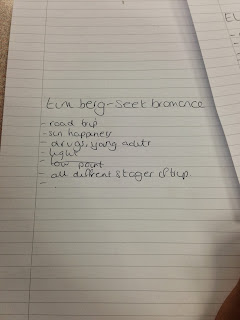 tim berg-seek bromance
- road trip
- sun happaness
- drugs, young adults
- light
- low point
- all different stages of trip.
-
EV